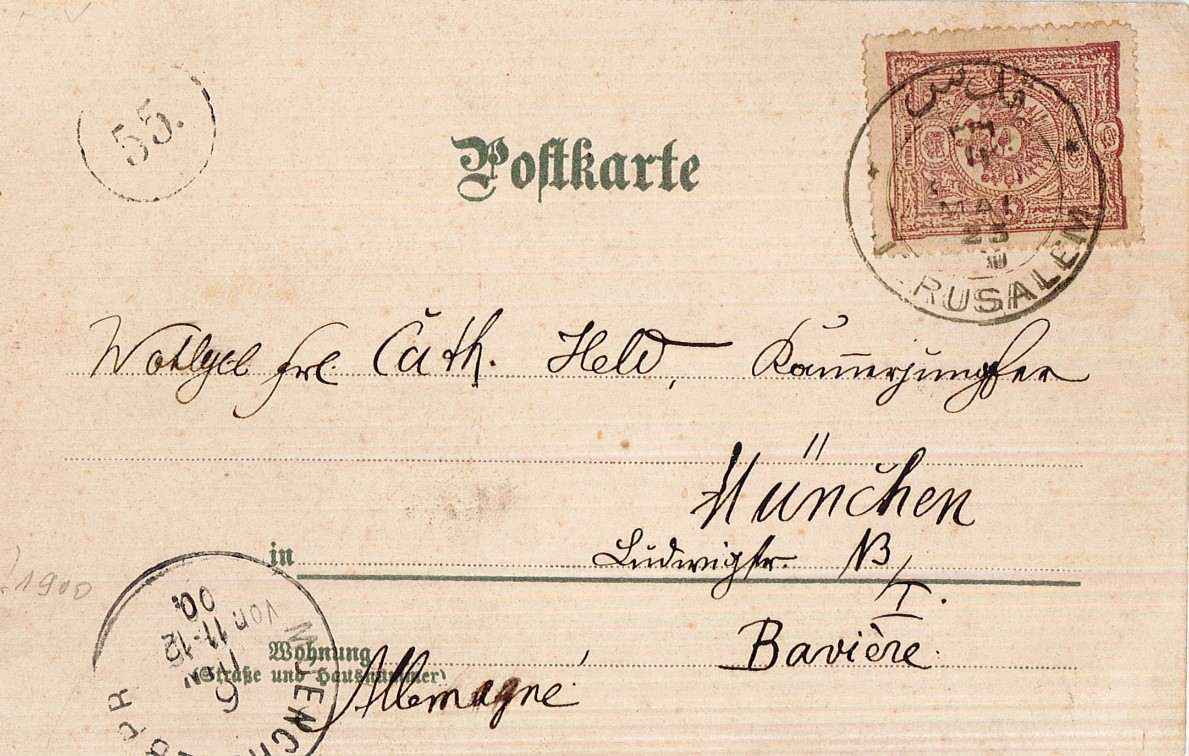 55.
Postkarte
قدس
MAI
23
RUSALEM
Frl. Cath. Held, Kammerjungfer
München
in Ludwigstr.
I.
1900
Wohnung
Bavière.
(Straße und Hausnummer)
Allemagne
MUENCH
VON
11-12
00.
6